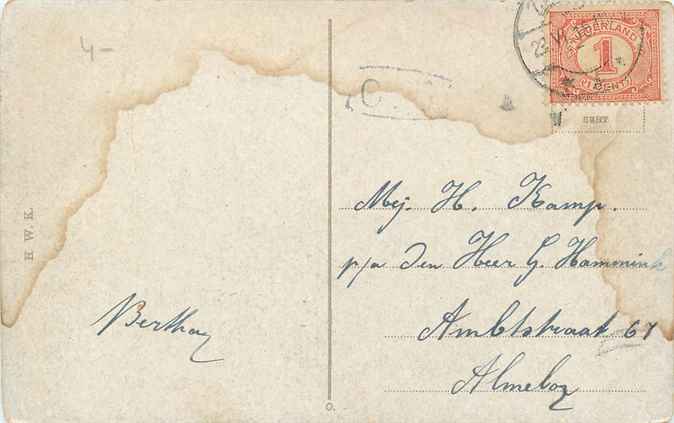 4-
NEDERLAND
1
CENT
C
H. W. K.
Mej. H. Kamp.
p/a den Heer G. Hammink
Ambtstraat 67
Almeloo
Bertha
O.